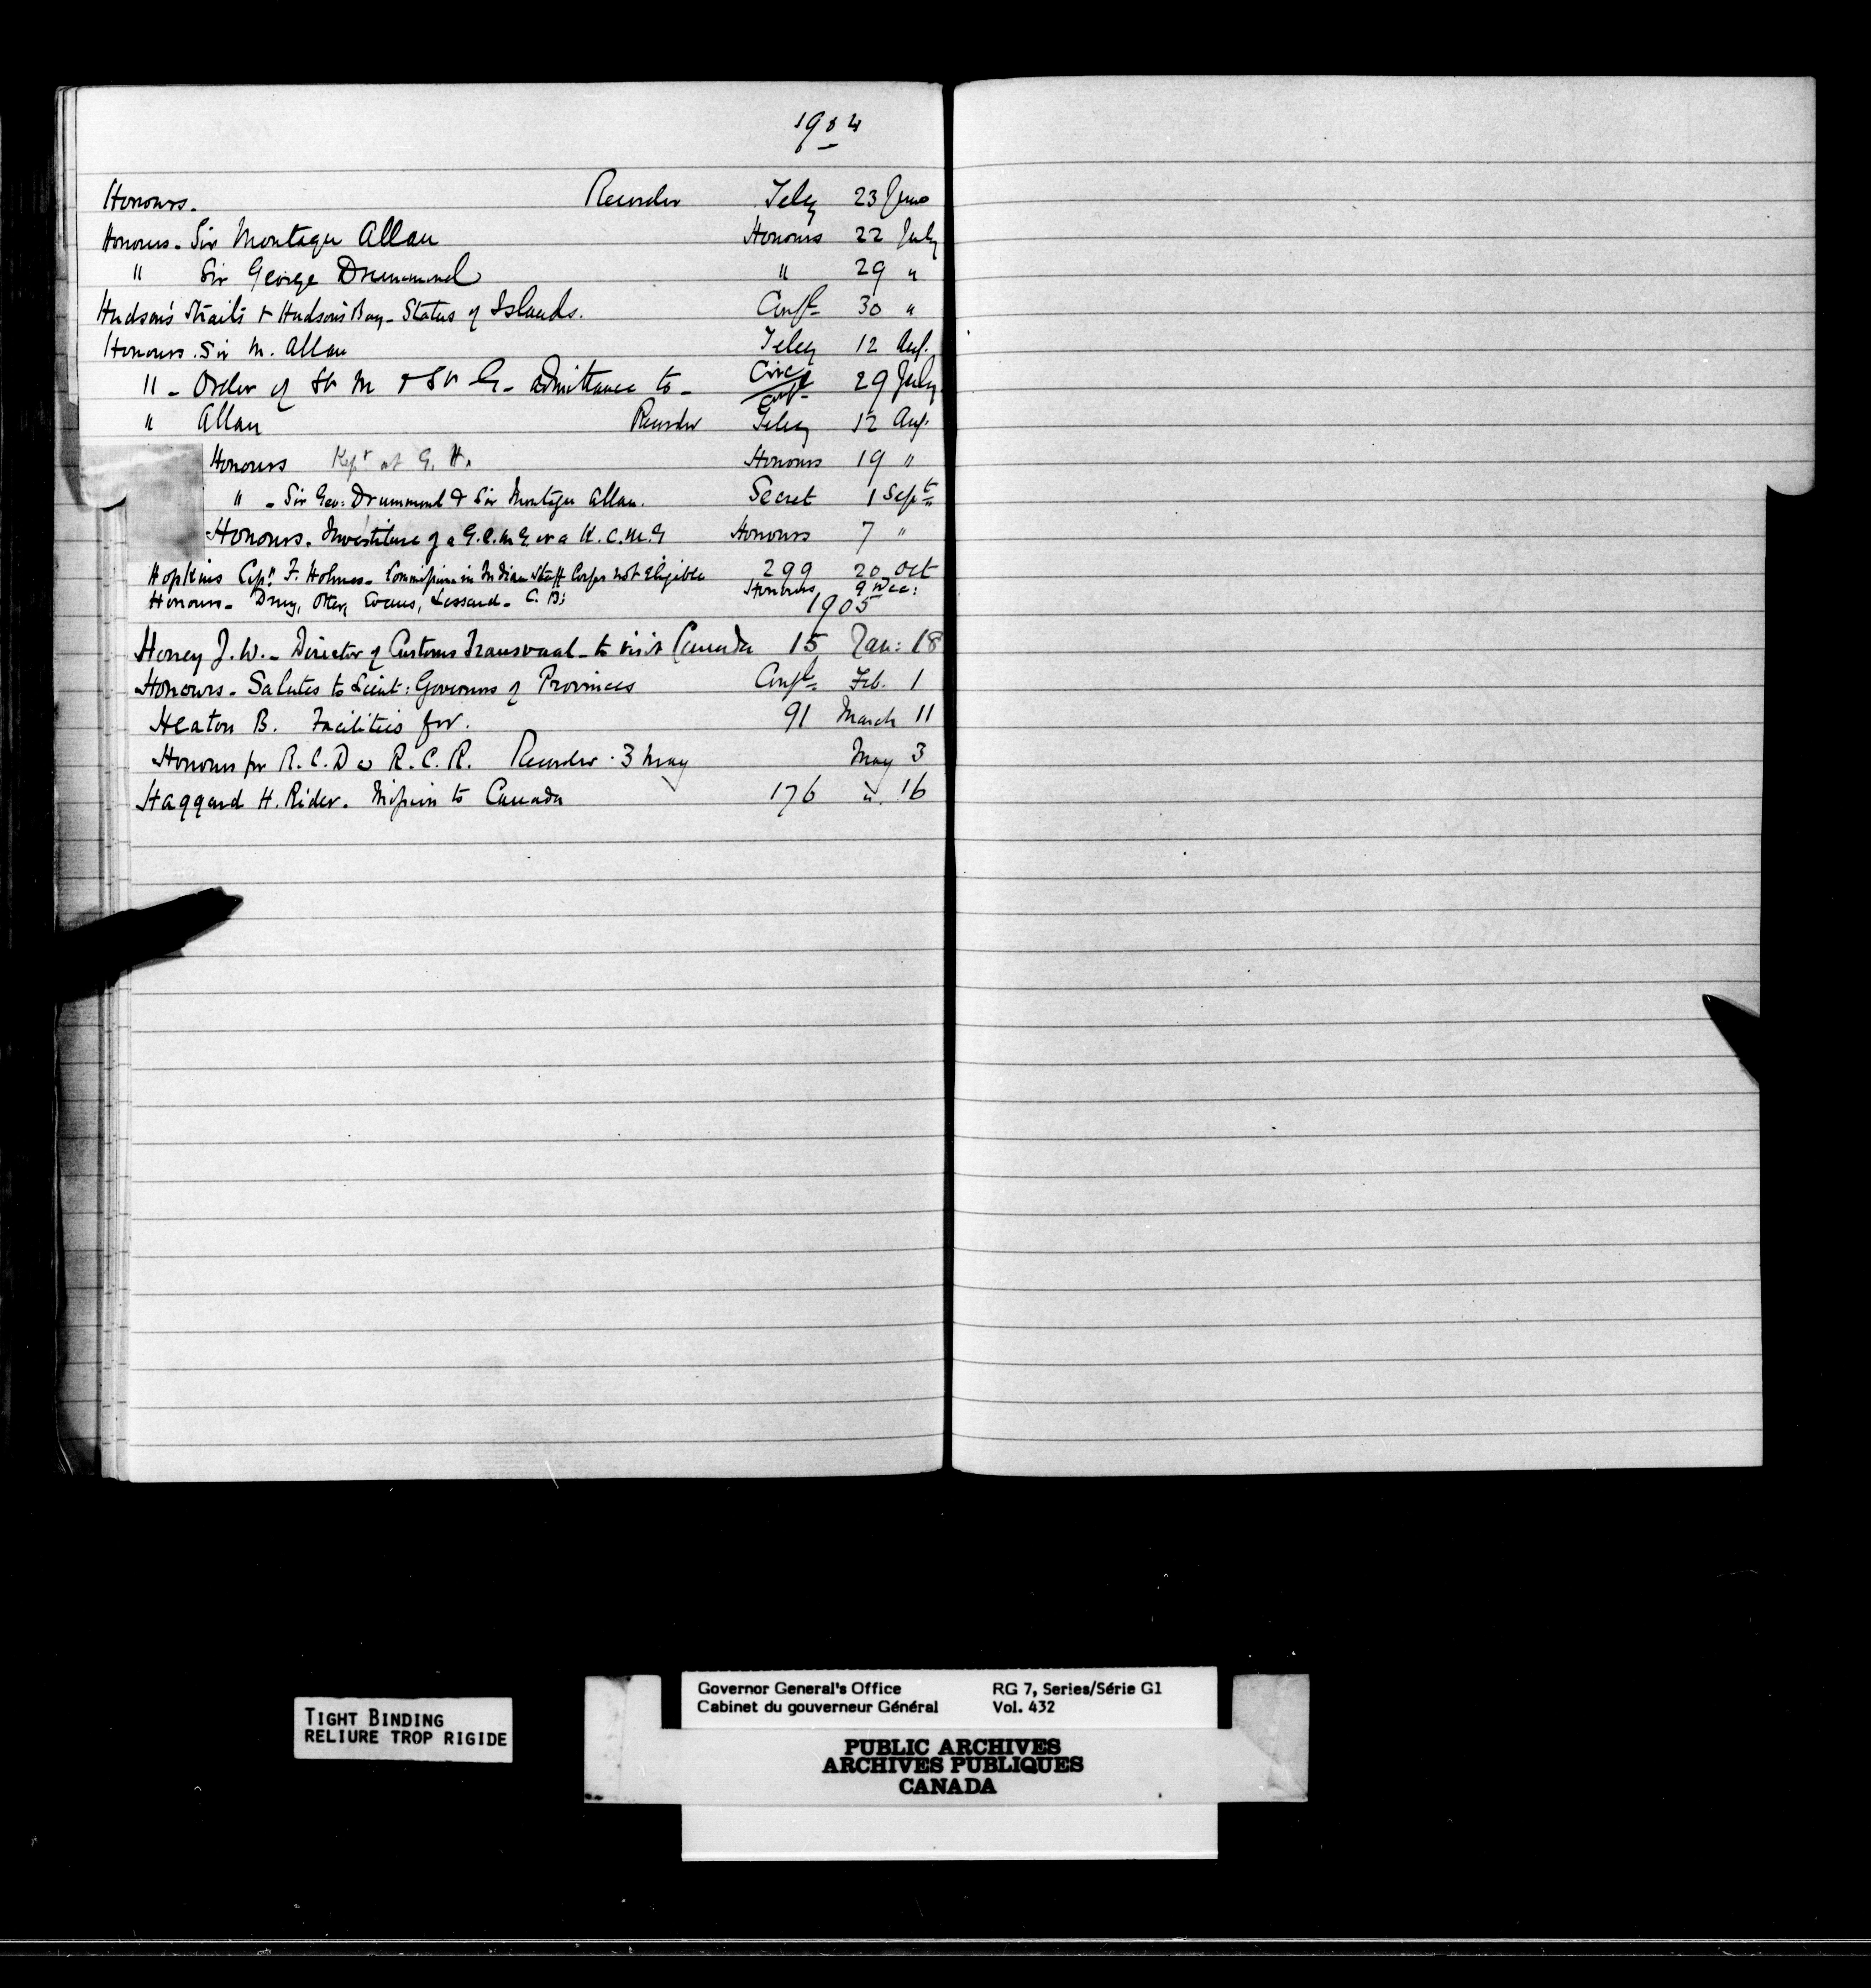 1904
Honours. Recorder Teleg 23 June
Honours - Sir Montagu Allan Honours 22 July
" Sir George Drummond " 29 "
Hudson's Straits & Hudson's Bay - Status of Islands. Conf<sup>l</sup> 30 "
Honours. Sir M. Allan Teleg 12 Aug.
" - Order of St M & St G - admittance to - Circ Conf<sup>l</sup> 29 July
" Allan Recorder Teleg 12 Aug.
Honours Kept at G. H. Honours 19 "
" - Sir Geo: Drummond & Sir Montagu Allan. Secret 1 Sept
Honours. Investiture of a G.C.M.G or a K.C.M.G Honours 7 "
Hopkins Cap<sup>n</sup> F. Holmes - Commission in Indian Staff Corps not eligible 299 20 Oct
Honours - Drury, Otter, Evans, Lessard - C.B; Honours 9 Dec:
1905
Honey J. W. - Director of Customs Transvaal - to visit Canada 15 Jan: 18
Honours - Salutes to Lieut: Governors of Provinces Conf<sup>l</sup> Feb. 1
Heaton B. Facilities for. 91 March 11
Honours for R.C.D & R.C.R. Recorder - 3 May May 3
Haggard H. Rider. Mission to Canada 176 " 16
TIGHT BINDING
RELIURE TROP RIGIDE
Governor General's Office RG 7, Series/Série G1
Cabinet du gouverneur Général Vol. 432
PUBLIC ARCHIVES
ARCHIVES PUBLIQUES
CANADA